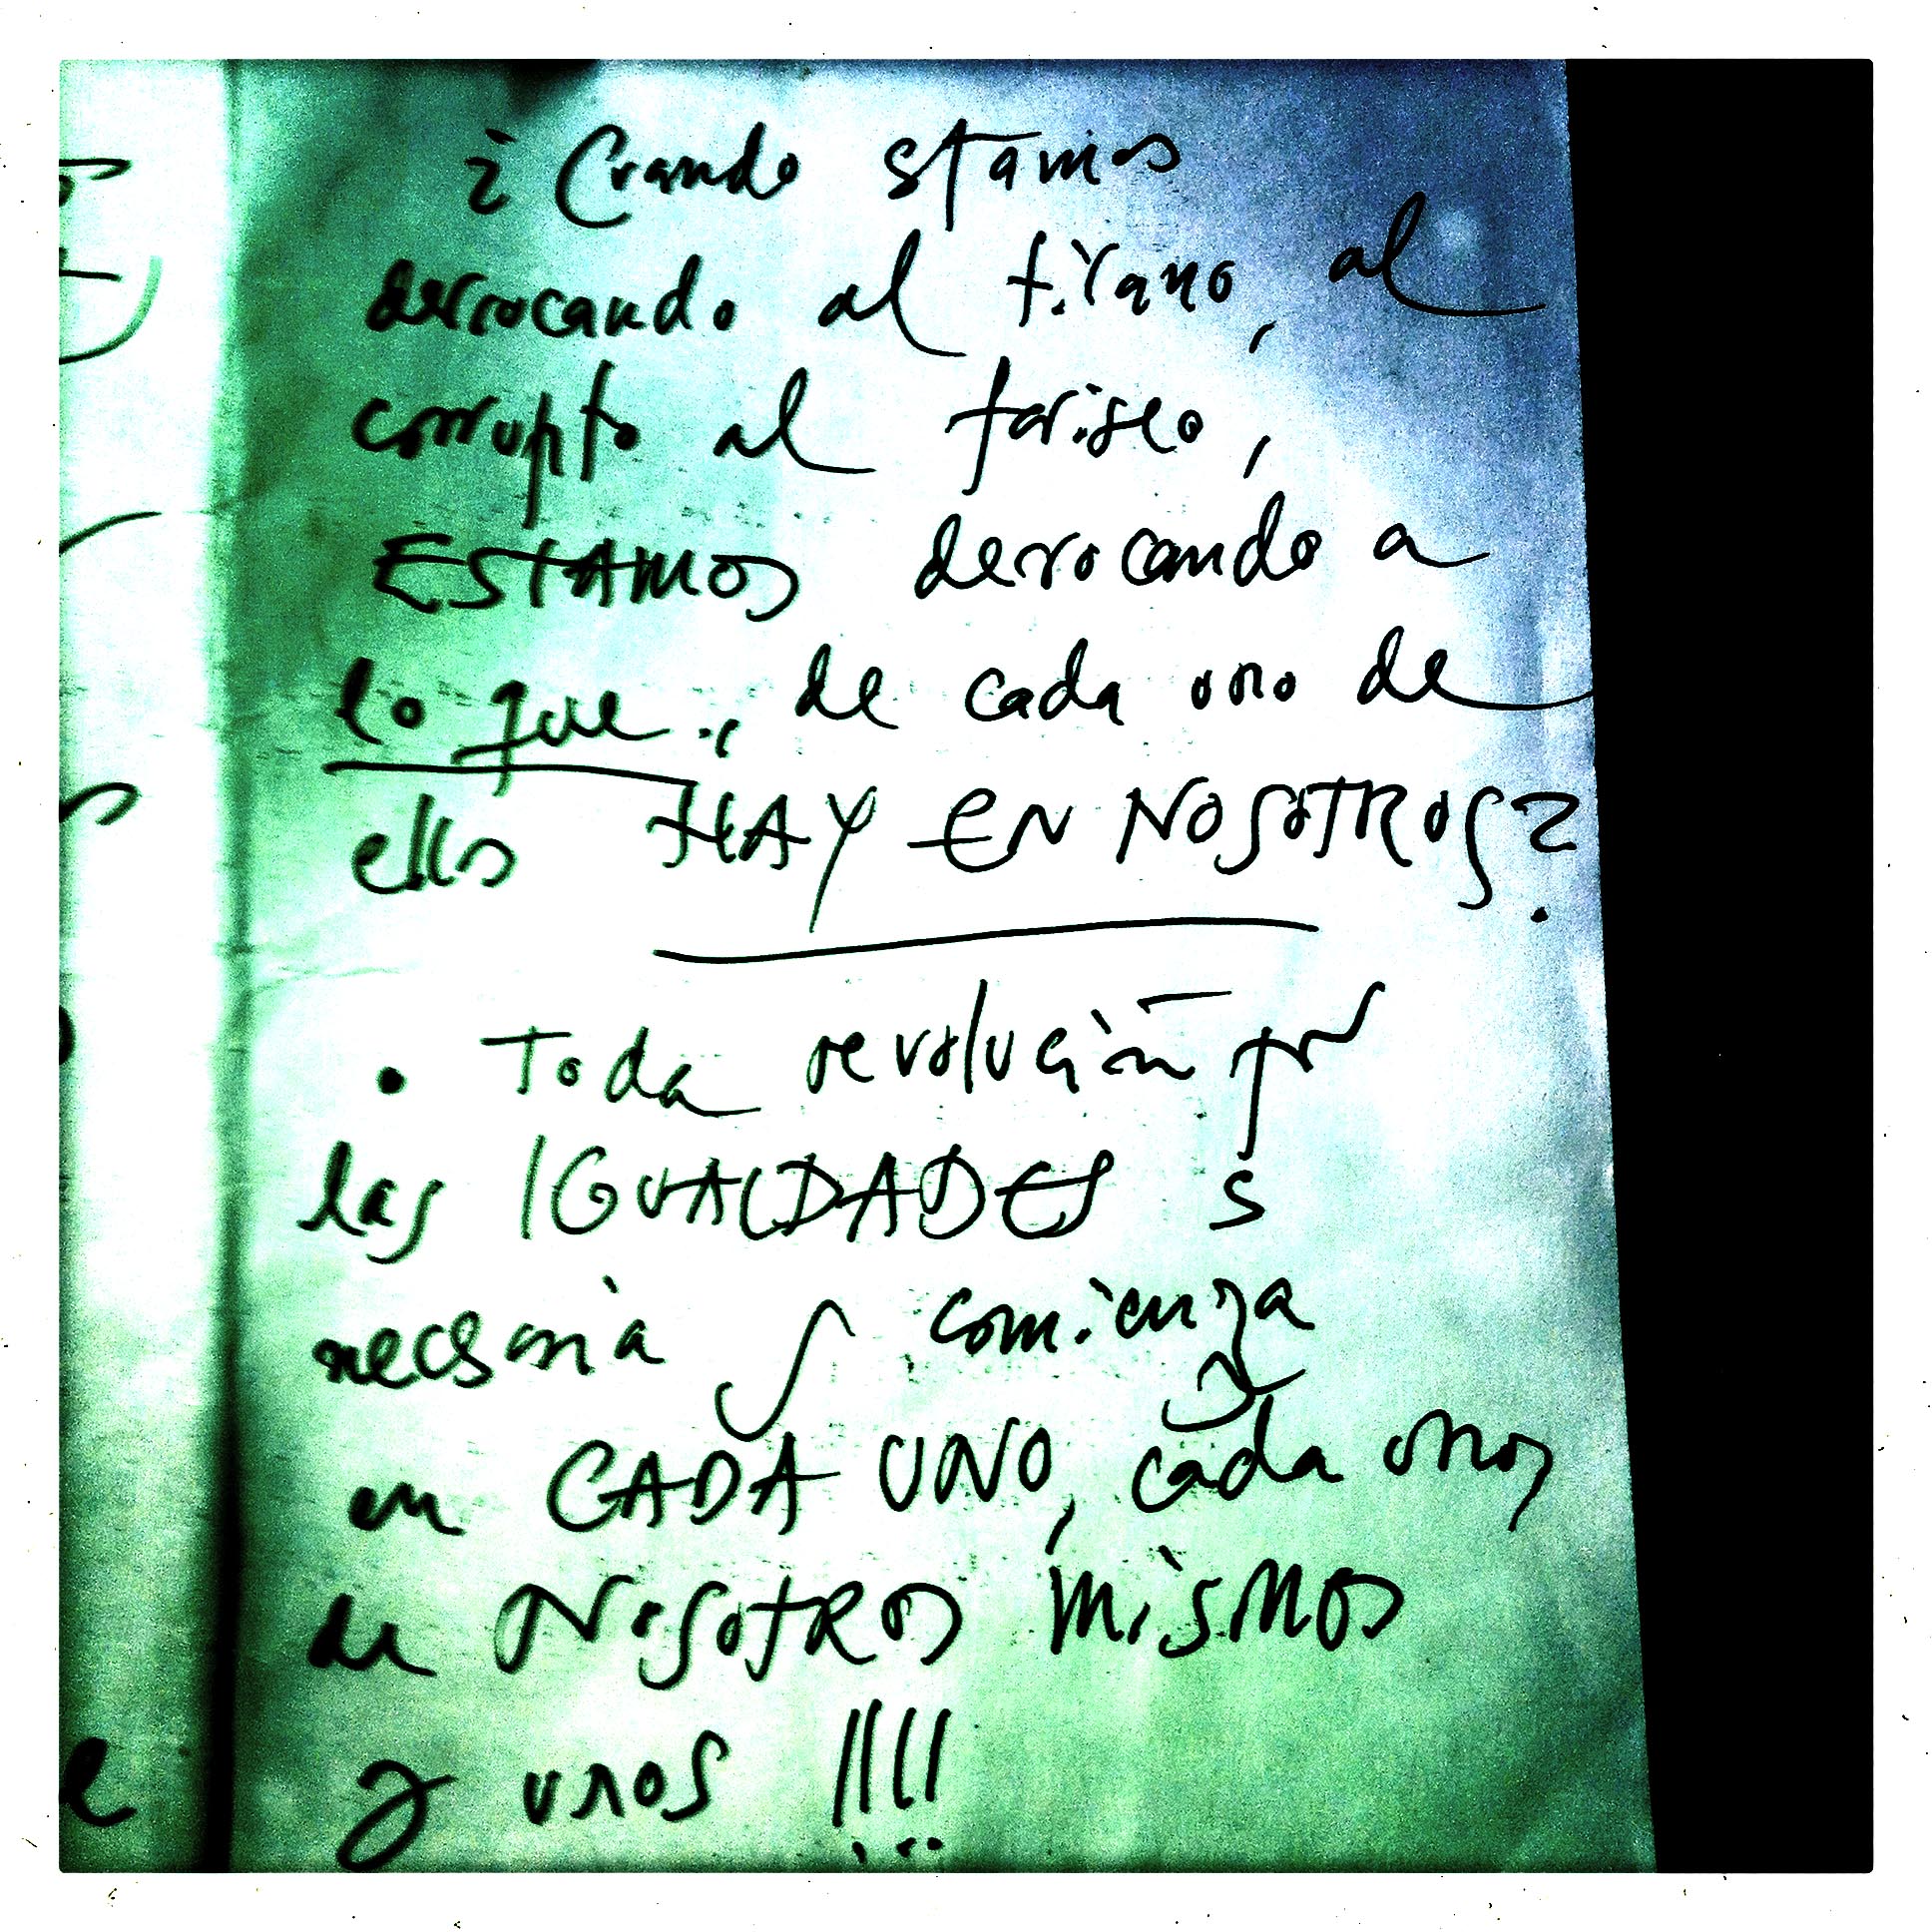 ¿Cuando stamos
derrocando al tirano, al
corrupto al fariseo,
ESTAMOS derrocando a
lo que, de cada uno de
ellos HAY EN NOSOTROS?
• Toda revolución por
las IGUALDADES s
necesaria y comienza
en CADA UNO, cada unos
de NOSOTROS MISMOS
y unos !!!!